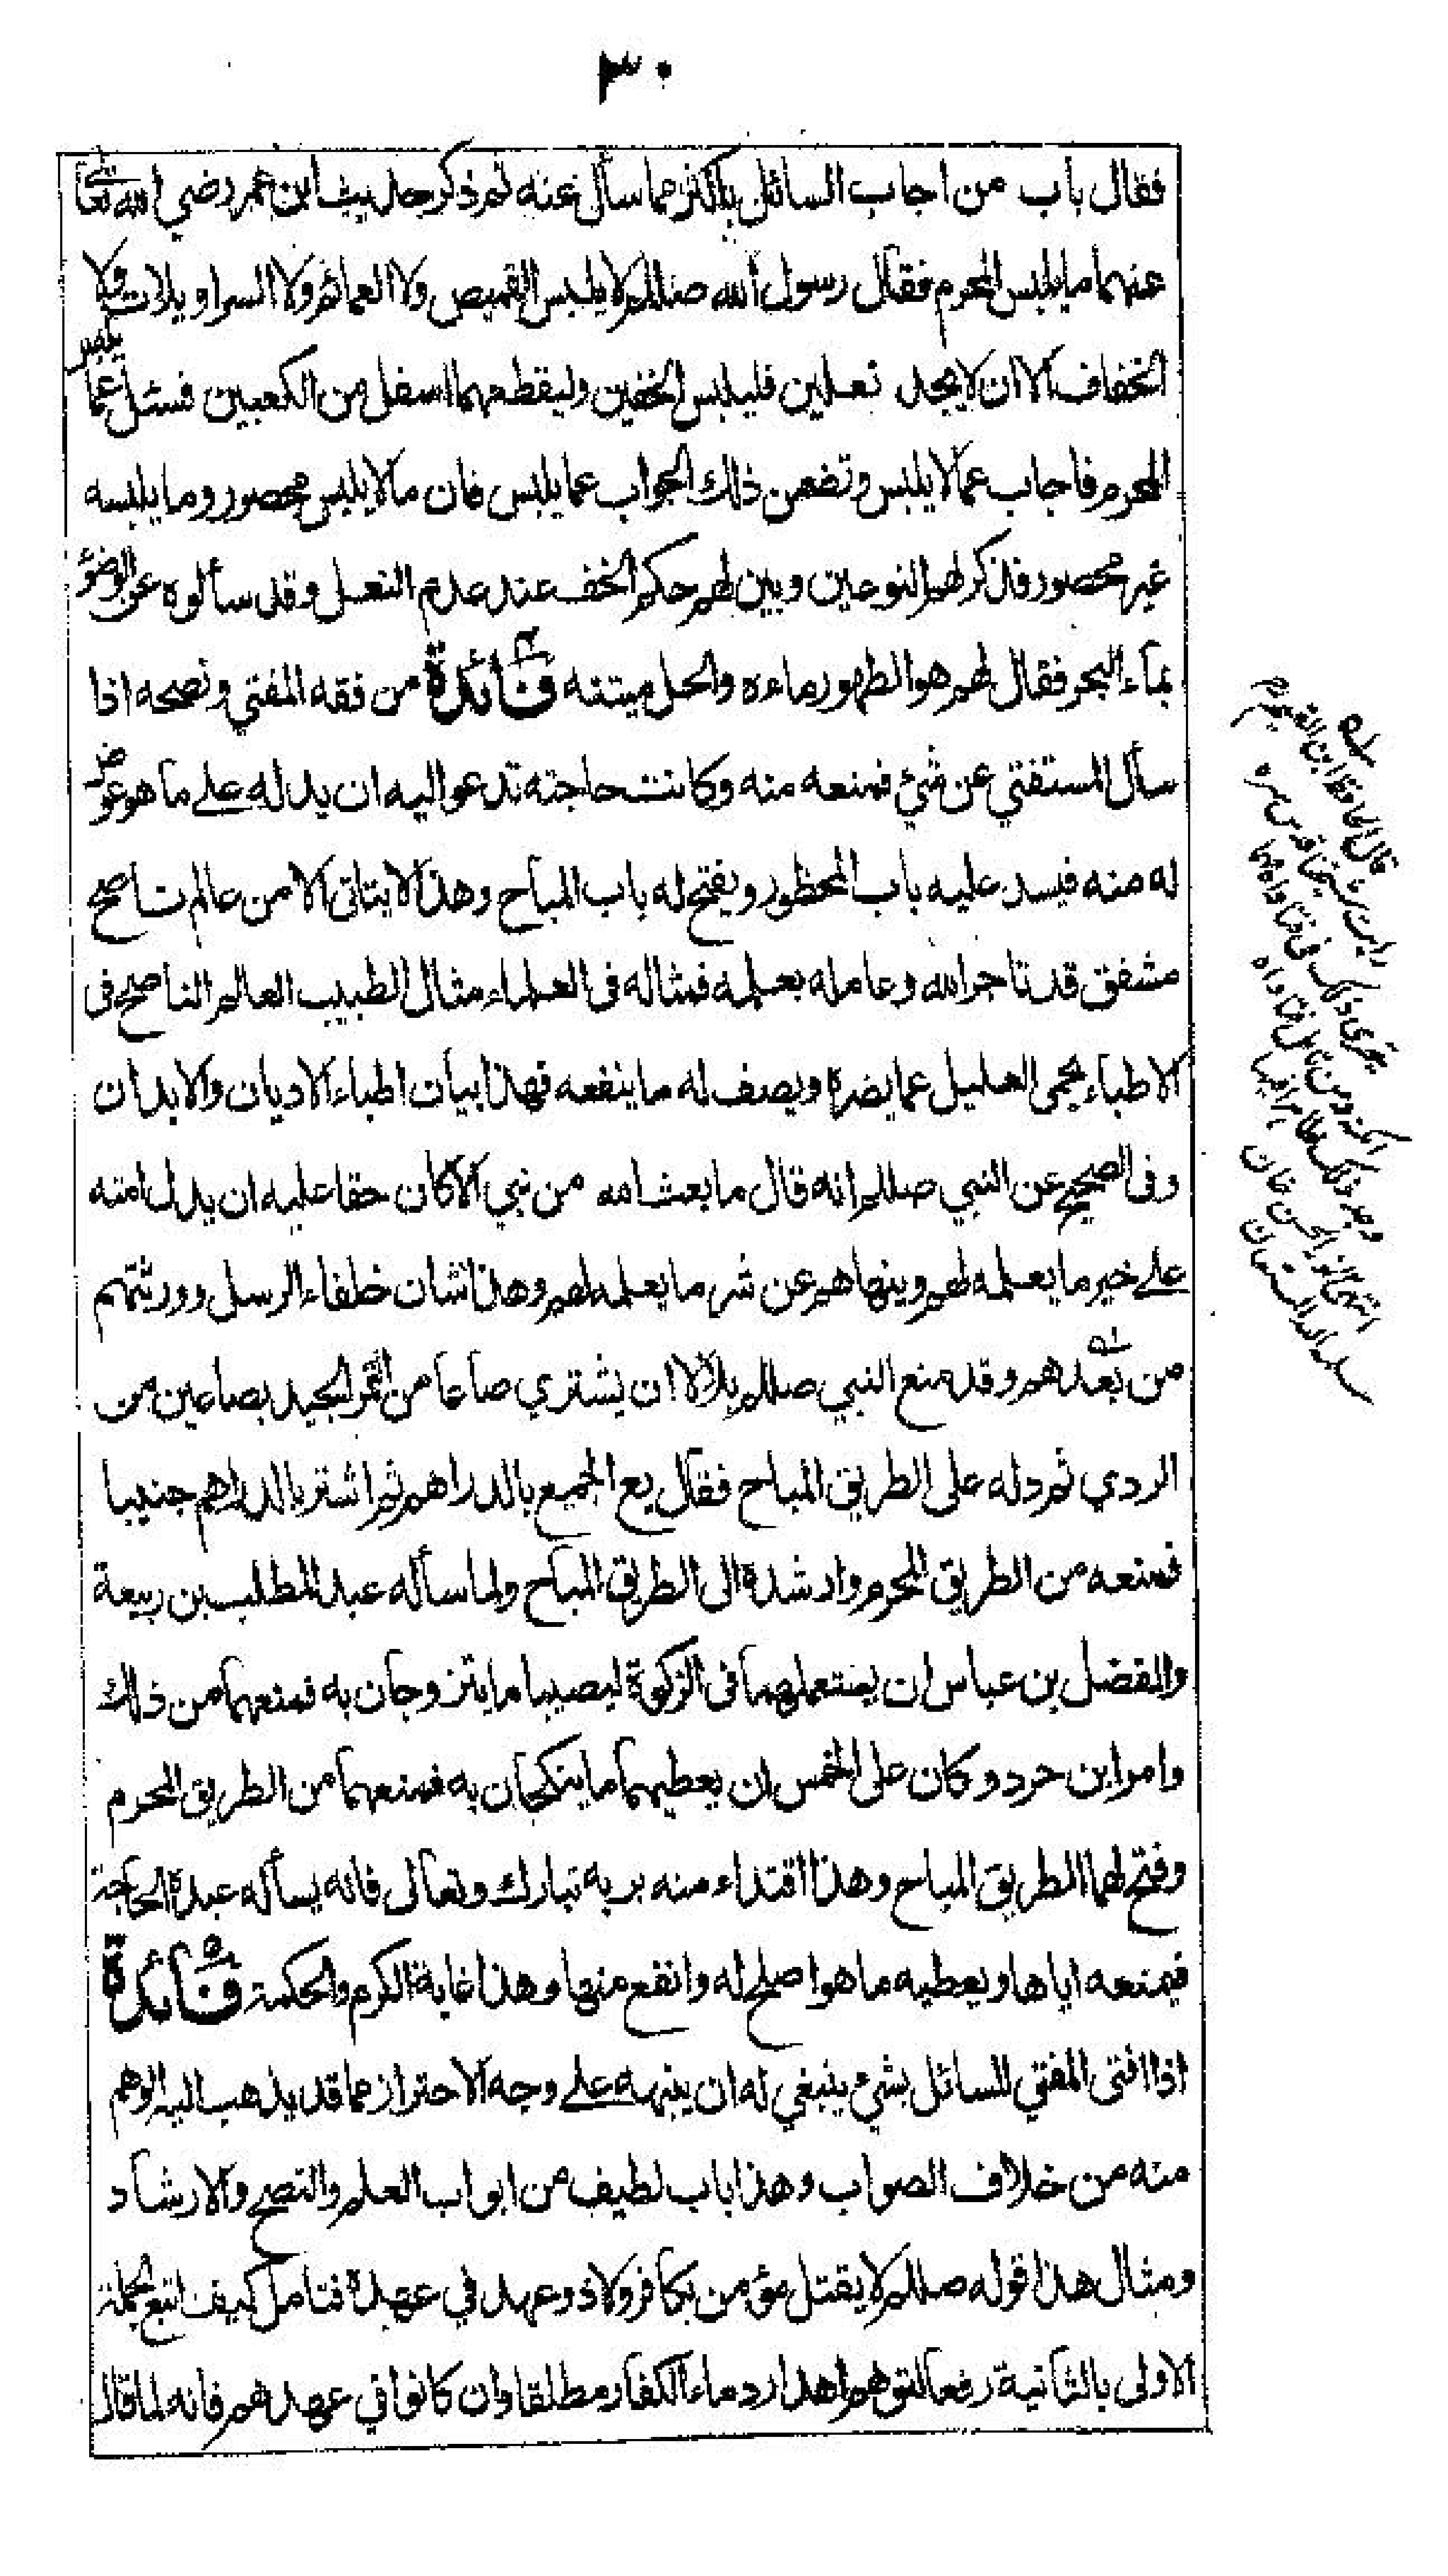 ٣٠
فقال باب من اجاب السائل باكثر مما سأل عنه ثم ذكر حديث ابن عمر رضي الله تعا
عنهما ما يلبس المحرم فقال رسول الله صلالله لا يلبس القميص ولا العمائم ولا السراويلات ولا
الخفاف الا ان لا يجد نعلين فليلبس الخفين وليقطعهما اسفل من الكعبين فسئل عما يلبس
المحرم فاجاب عما لا يلبس وتضمن ذلك الجواب عما يلبس فان ما لا يلبس محصور وما يلبسه
غير محصور فذكر لهم النوعين وبين لهم حكم الخف عند عدم النعل وقد سألوه عن الوضوء
بماء البحر فقال لهم هو الطهور ماءه والحل ميتته فائدة من فقه المفتي ونصحه اذا
سأل المستفتي عن شئ فمنعه منه وكانت حاجته تدعو اليه ان يدله على ما هو عوض
له منه فيسد عليه باب المحظور ويفتح له باب المباح وهذا لا يتاتى الا من عالم ناصح
مشفق قد تاجر الله وعامله بعلمه فمثاله فى العلماء مثال الطبيب العالم الناصح فى
الاطباء يحمى العليل عما يضره ويصف له ما ينفعه فهذا بيان اطباء الاديان والابدان
وفى الصحيح عن النبي صللم انه قال ما بعث الله من نبي الا كان حقا عليه ان يدل امته
على خير ما يعلمه لهم وينهاهم عن شر ما يعلمه لهم وهذا شان خلفاء الرسل وورثتهم
من بعدهم وقد منع النبي صللم بلالا ان يشتري صاعا من التمر الجيد بصاعين من
الردي ثم دله على الطريق المباح فقال بع الجميع بالدراهم ثم اشتر بالدراهم جنيبا
فمنعه من الطريق المحرم وارشده الى الطريق المباح ولما سأله عبد المطلب بن ربيعة
والفضل بن عباس ان يستعملهما فى الزكوة ليصيبا ما يتزوجان به فمنعهما من ذلك
وامر ابن حرد وكان على الخمس ان يعطيهما ما ينكحان به فمنعهما من الطريق المحرم
وفتح لهما الطريق المباح وهذا اقتداء منه بربه تبارك وتعالى فانه يسأله عبده الحاجة
فيمنعه اياها ويعطيه ما هو اصلح له وانفع منها وهذا غاية الكرم والحكمة فائدة
اذا افتى المفتي للسائل بشيء ينبغي له ان ينبهه على وجه الاحتراز مما قد يذهب اليه الوهم
منه من خلاف الصواب وهذا باب لطيف من ابواب العلم والنصح والارشاد
ومثال هذا قوله صللم لا يقتل مؤمن بكافر ولا ذو عهد في عهده فتامل كيف اتبع الجملة
الاولى بالثانية رفعا لتوهم اهدار دماء الكفار مطلقا وان كانوا في عهدهم فانه لما قال
قال الحافظ ابن القيم
رايت شيخنا قدس سره
يتحرى ذلك فى فتاواه مهما
امكنه ومن تامل فتاواه
وجد ذلك ظاهرا فيها
انتهى ابو الحسن خان
سلمه الله